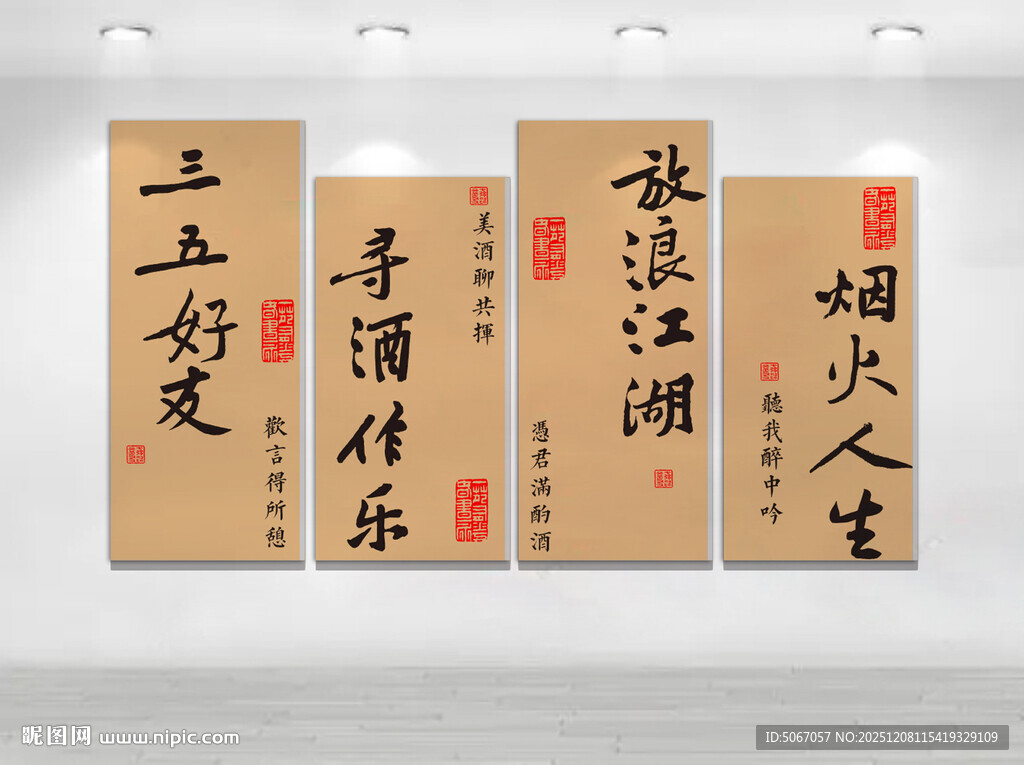 三五好友
歡言得所憩
寻酒作乐
美酒聊共揮
放浪江湖
憑君滿酌酒
烟火人生
聽我醉中吟
昵图网 www.nipic.com
ID:5067057 NO:20251208115419329109